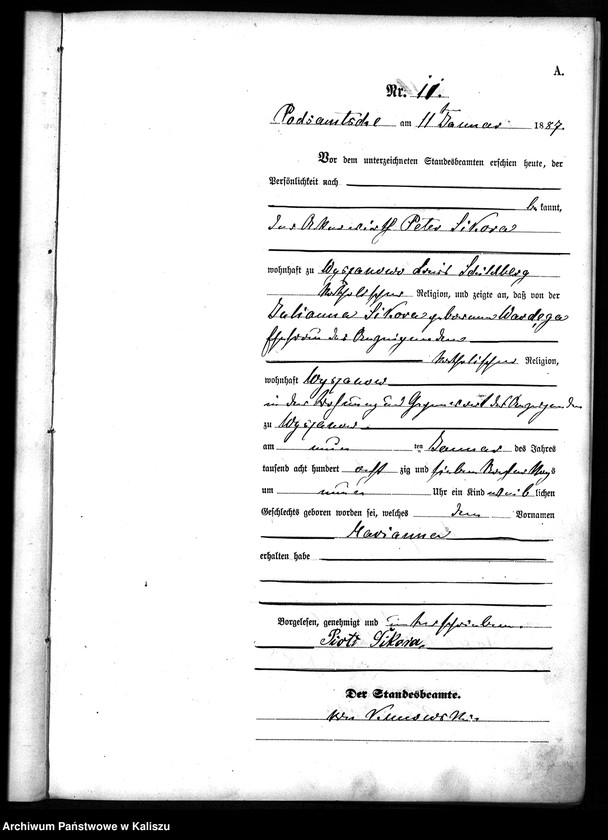 A.
Nr. 11.
Podsamtsche am 11 Januar 1887.
Vor dem unterzeichneten Standesbeamten erschien heute, der
Persönlichkeit nach
bekannt,
der Ackerwirth Peter Sikora
wohnhaft zu Wyszanowo Kreis Schildberg
katholischer Religion, und zeigte an, daß von der
Julianna Sikora geborenen Wardęga
Ehefrau des Anzeigenden
katholischer Religion,
wohnhaft Wyszanow
in der Wohnung und Gegenwart des Anzeigenden
zu Wyszanow
am neun ten Januar des Jahres
tausend acht hundert acht zig und sieben Nachmittags
um neun Uhr ein Kind weib lichen
Geschlechts geboren worden sei, welches den Vornamen
Marianna
erhalten habe
Vorgelesen, genehmigt und unterschrieben.
Piotr Sikora
Der Standesbeamte.
Archiwum Państwowe w Kaliszu